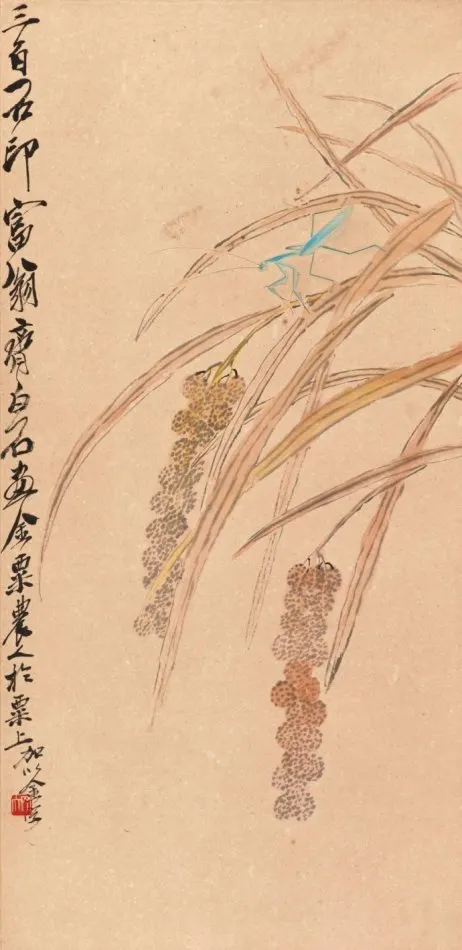 三百石印富翁齊白石畫金粟農人於粟上加以金